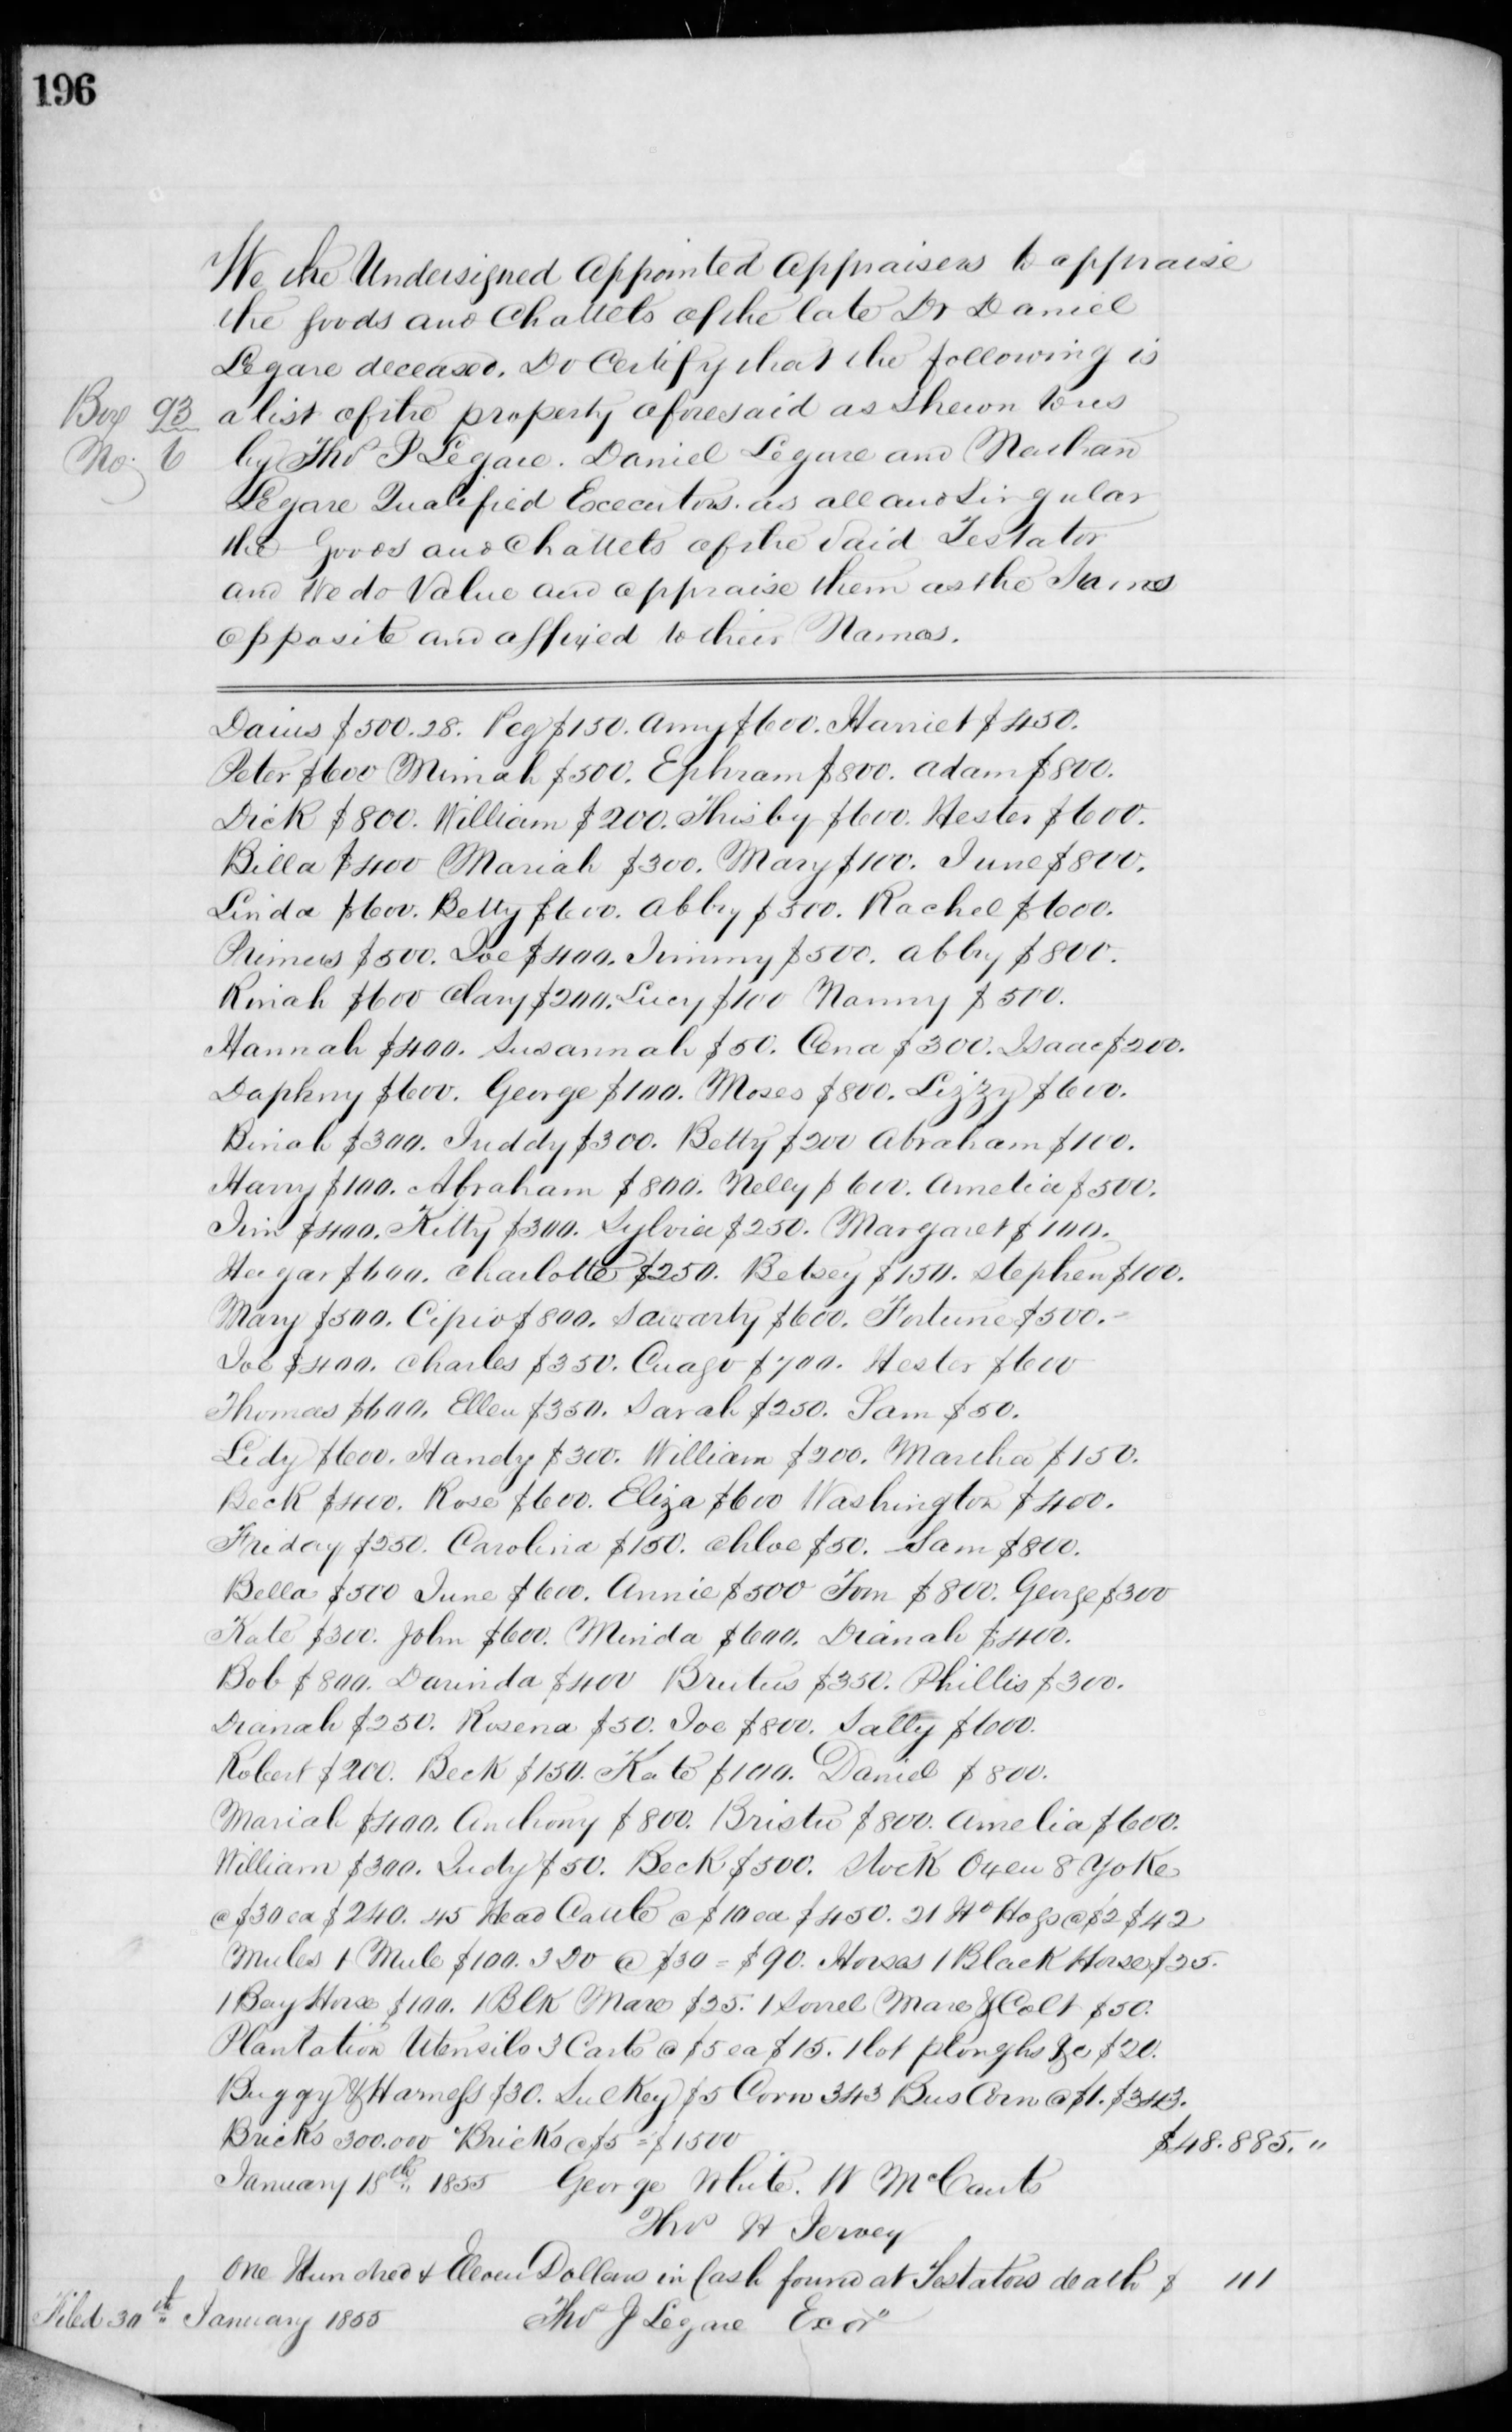 196
We the Undersigned Appointed Appraisers to appraise
the goods and Chattels of the late Dr Daniel
Legare deceased. Do Certify that the following is
Box 93 a list of the property aforesaid as shewn to us
No. 6 by Thos P Legare. Daniel Legare and Nathan
Legare Qualified Executors. as all and Singular
the Goods and Chattels of the Said Testator
and We do Value and appraise them as the Sums
opposite and affixed to their Names.
Darius $500.28. Peg $150. Amy $600. Harriet $450.
Peter $600 Mimah $500. Ephram $800. Adam $800.
Dick $800. William $200. Thisby $600. Hester $600.
Billa $400 Mariah $300. Mary $100. June $800.
Linda $600. Betty $600. Abby $500. Rachel $600.
Primus $500. Joe $400. Jimmy $500. Abby $800.
Rinah $600 Clary $200. Lucy $100 Nanny $500.
Hannah $400. Susannah $50. Cena $300. Isaac $200.
Daphny $600. George $100. Moses $800. Lizzy $600.
Binah $300. Juddy $300. Betty $200 Abraham $100.
Harry $100. Abraham $800. Nelly $600. Amelia $500.
Jim $400. Kitty $300. Sylvia $250. Margaret $100.
Hagar $600. Charlotte $250. Betsey $150. Stephen $100.
Mary $500. Cipio $800. $600. Fortune $500.
Joe $400. Charles $350. $700. Hester $600
Thomas $600. Ellen $350. Sarah $250. Sam $50.
Lidy $600. Handy $300. William $200. Martha $150.
Beck $400. Rose $600. Eliza $600 Washington $400.
Friday $250. Carolina $150. Chloe $50. Sam $800.
Bella $500 June $600. Annie $500 Tom $800. George $300
Kate $300. John $600. Minda $600. Dianah $400.
Bob $800. Darinda $400 Brutus $350. Phillis $300.
Dianah $250. Rosena $50. Joe $800. Sally $600.
Robert $200. Beck $150. Kate $100. Daniel $800.
Mariah $400. Anthony $800. Bristu $800. Amelia $600.
William $300. Judy $50. Beck $500. Stock Oxen 8 Yoke
@ $30 ea $240. 45 Head Cattle @ $10 ea $450. 21 Hd Hogs @ $2 $42
Mules 1 Mule $100. 3 Do @ $30 = $90. Horses 1 Black Horse $25.
1 Bay Horse $100. 1 Blk Mare $25. 1 Sorrel Mare & Colt $50.
Plantation Utensils 3 Carts @ $5 ea $15. 1 lot ploughs &c $20.
Buggy & Harness $30. Sulkey $5 Corn 343 Bus Corn @ $1. $343.
Bricks 300.000 Bricks @ $5 = $1500 $48.885. "
January 18th 1855 George White. W McCants
Thos H Jervey
One Hundred & Eleven Dollars in Cash found at Testators death $ 111
Filed 30th January 1855 Thos J Legare Exor